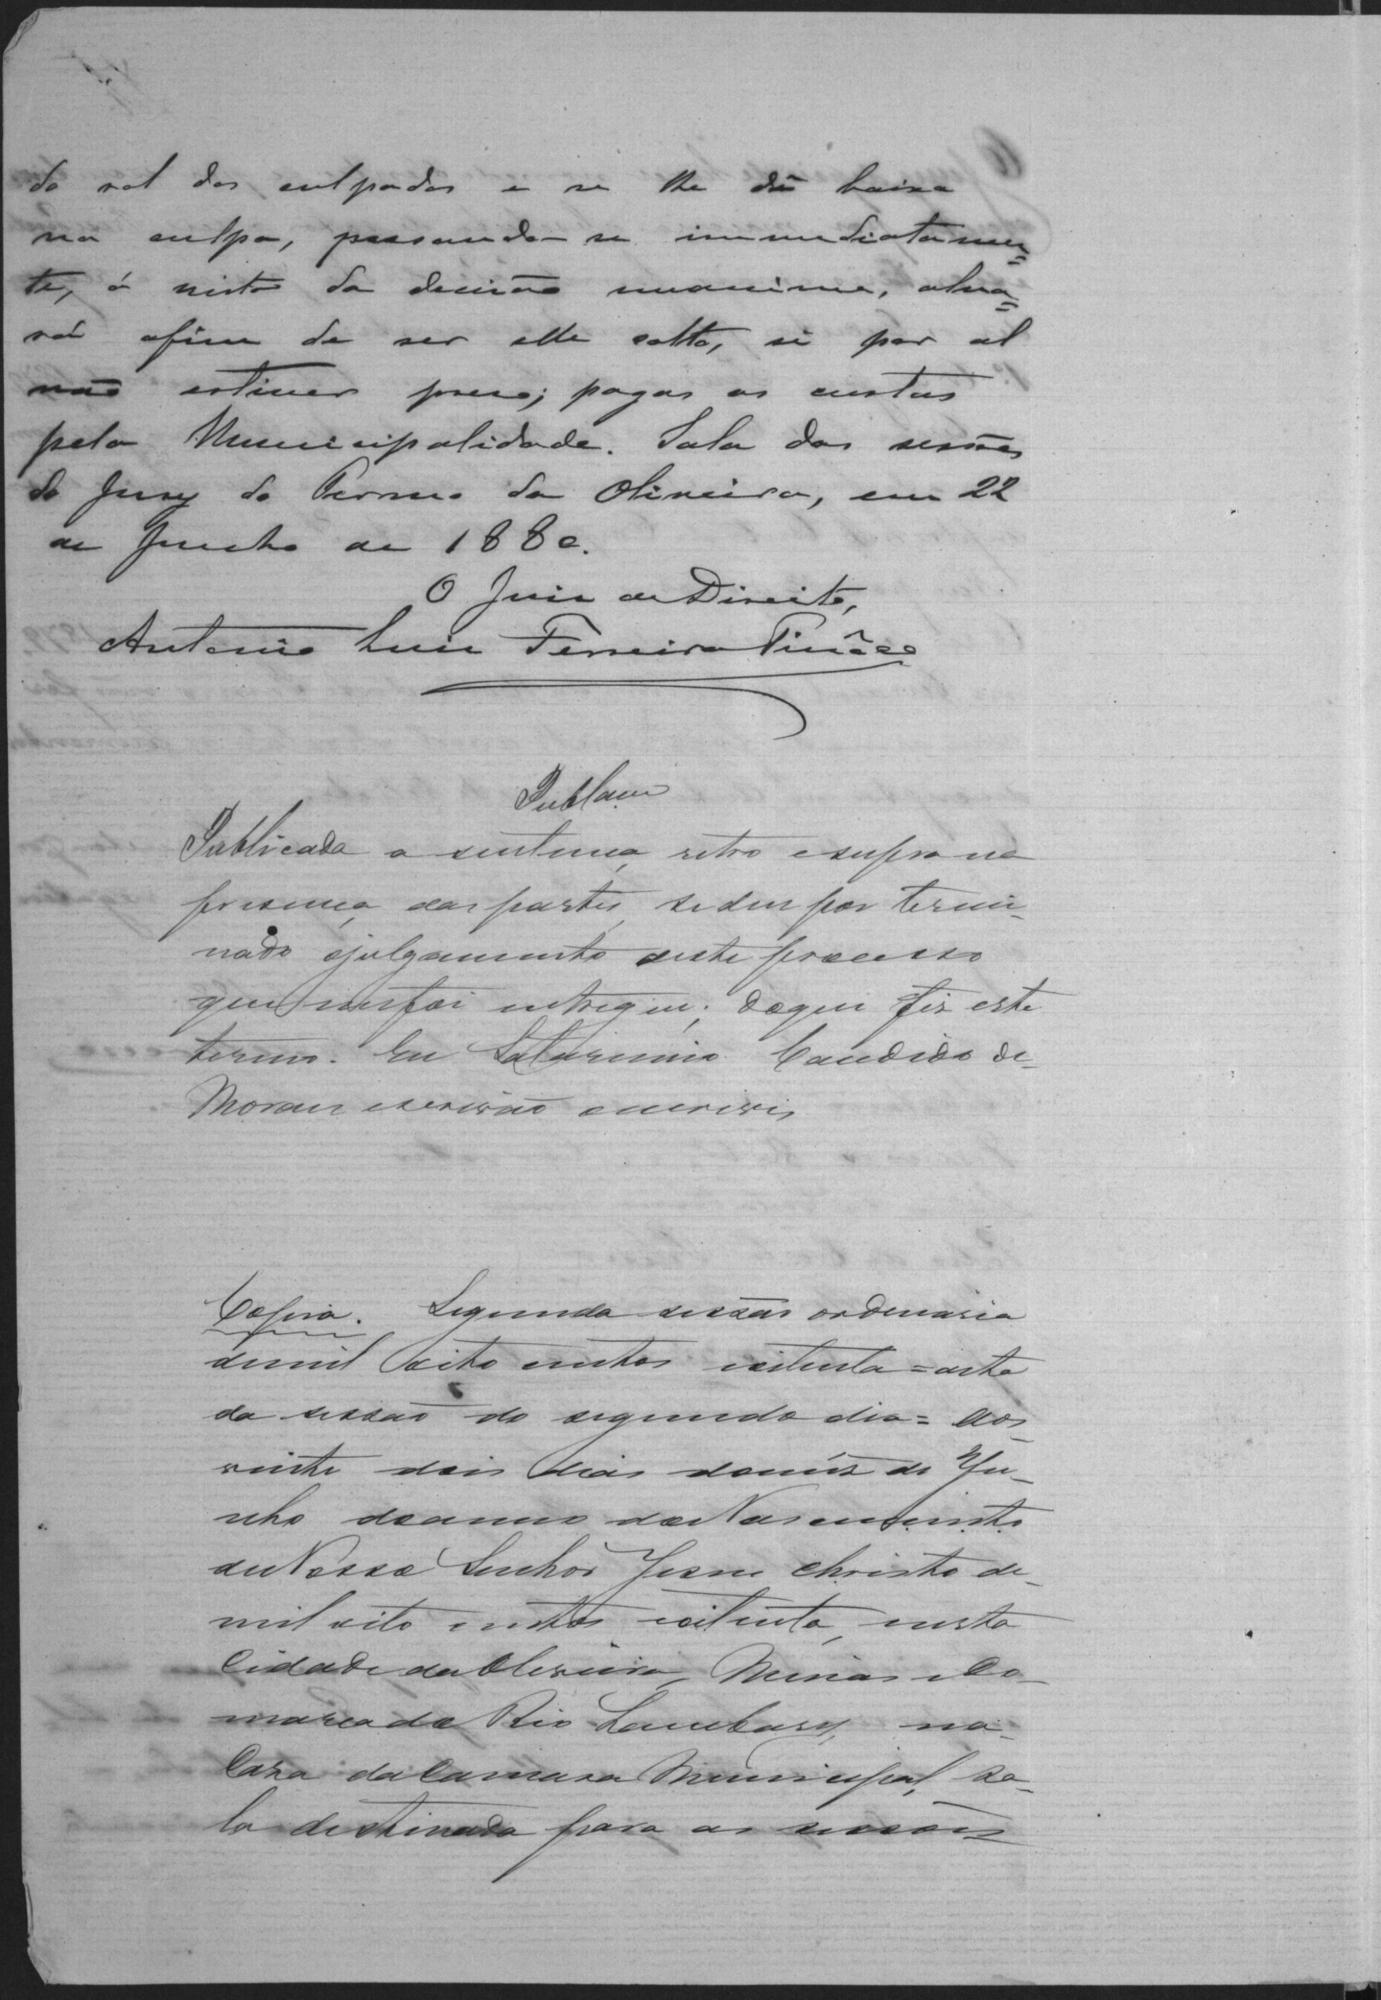 do rol dos culpados e se lhe dê baixa
na culpa, passando-se immediatamen=
te, á vista da decisão unanime, alva=
rá afim de ser elle solto, si por al
não estiver preso; pagas as custas
pela Municipalidade. Sala das sessões
do Jury do Termo da Oliveira, em 22
de Junho de 1880.
O Juiz de Direito,
Antonio Luiz Ferreira Tinôco
Publicam
Publicada a sentença retro e supra na
presença das partes, se deu por termi-
nado o julgamento deste processo
que me foi entregue; do que fiz este
termo. Eu Saturnino Candido de
Moraes escrivão escrevi
Copia. Segunda sessão ordenaria
de mil oito centos e oitenta = acta
da sessão do segundo dia = Aos
vinte dois dias do mêz de Ju-
nho do anno do Nascimento
de Nosso Senhor Jesus Christo de
mil oito centos e oitenta, nesta
Cidade da Oliveira, Minas e Co-
marca do Rio Lambary, na
Casa da Camara Municipal, sa-
la destinada para as sessões